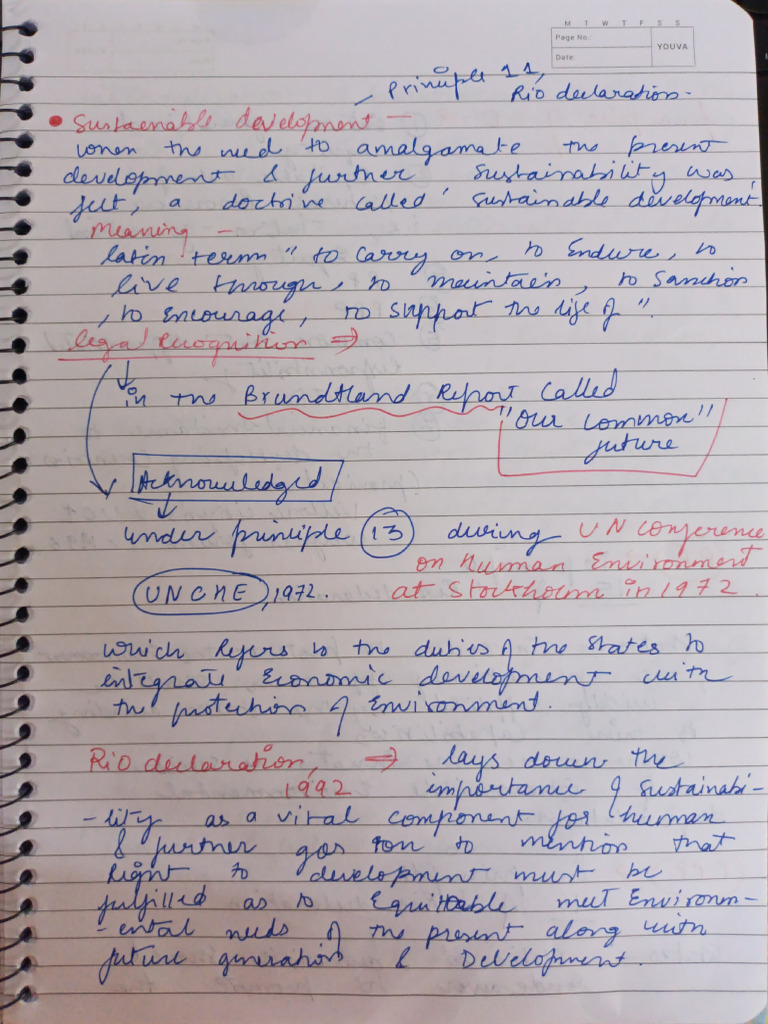 M T W T F S S
Page No.:
YOUVA
Date:
Principle 11,
Rio declaration.
• Sustainable development —
when the need to amalgamate the present
development & further sustainability was
felt, a doctrine called 'sustainable development'.
Meaning —
latin term " to carry on, to Endure, to
live through, to maintain, to Sanction
, to Encourage, to support the life of ".
legal recognition ⇒
in the Brundtland Report called
"Our common"
future
Acknowledged
under principle 13 during UN Conference
on Human Environment
UNCHE, 1972. at Stockholm in 1972.
which refers to the duties of the states to
integrate Economic development with
the protection of Environment.
Rio declaration, ⇒ lays down the
1992 importance of sustainabi-
-lity as a vital component for human
& further goes on to mention that
Right to development must be
fulfilled as to Equitable meet Environm-
-ental needs of the present along with
future generations & Development.